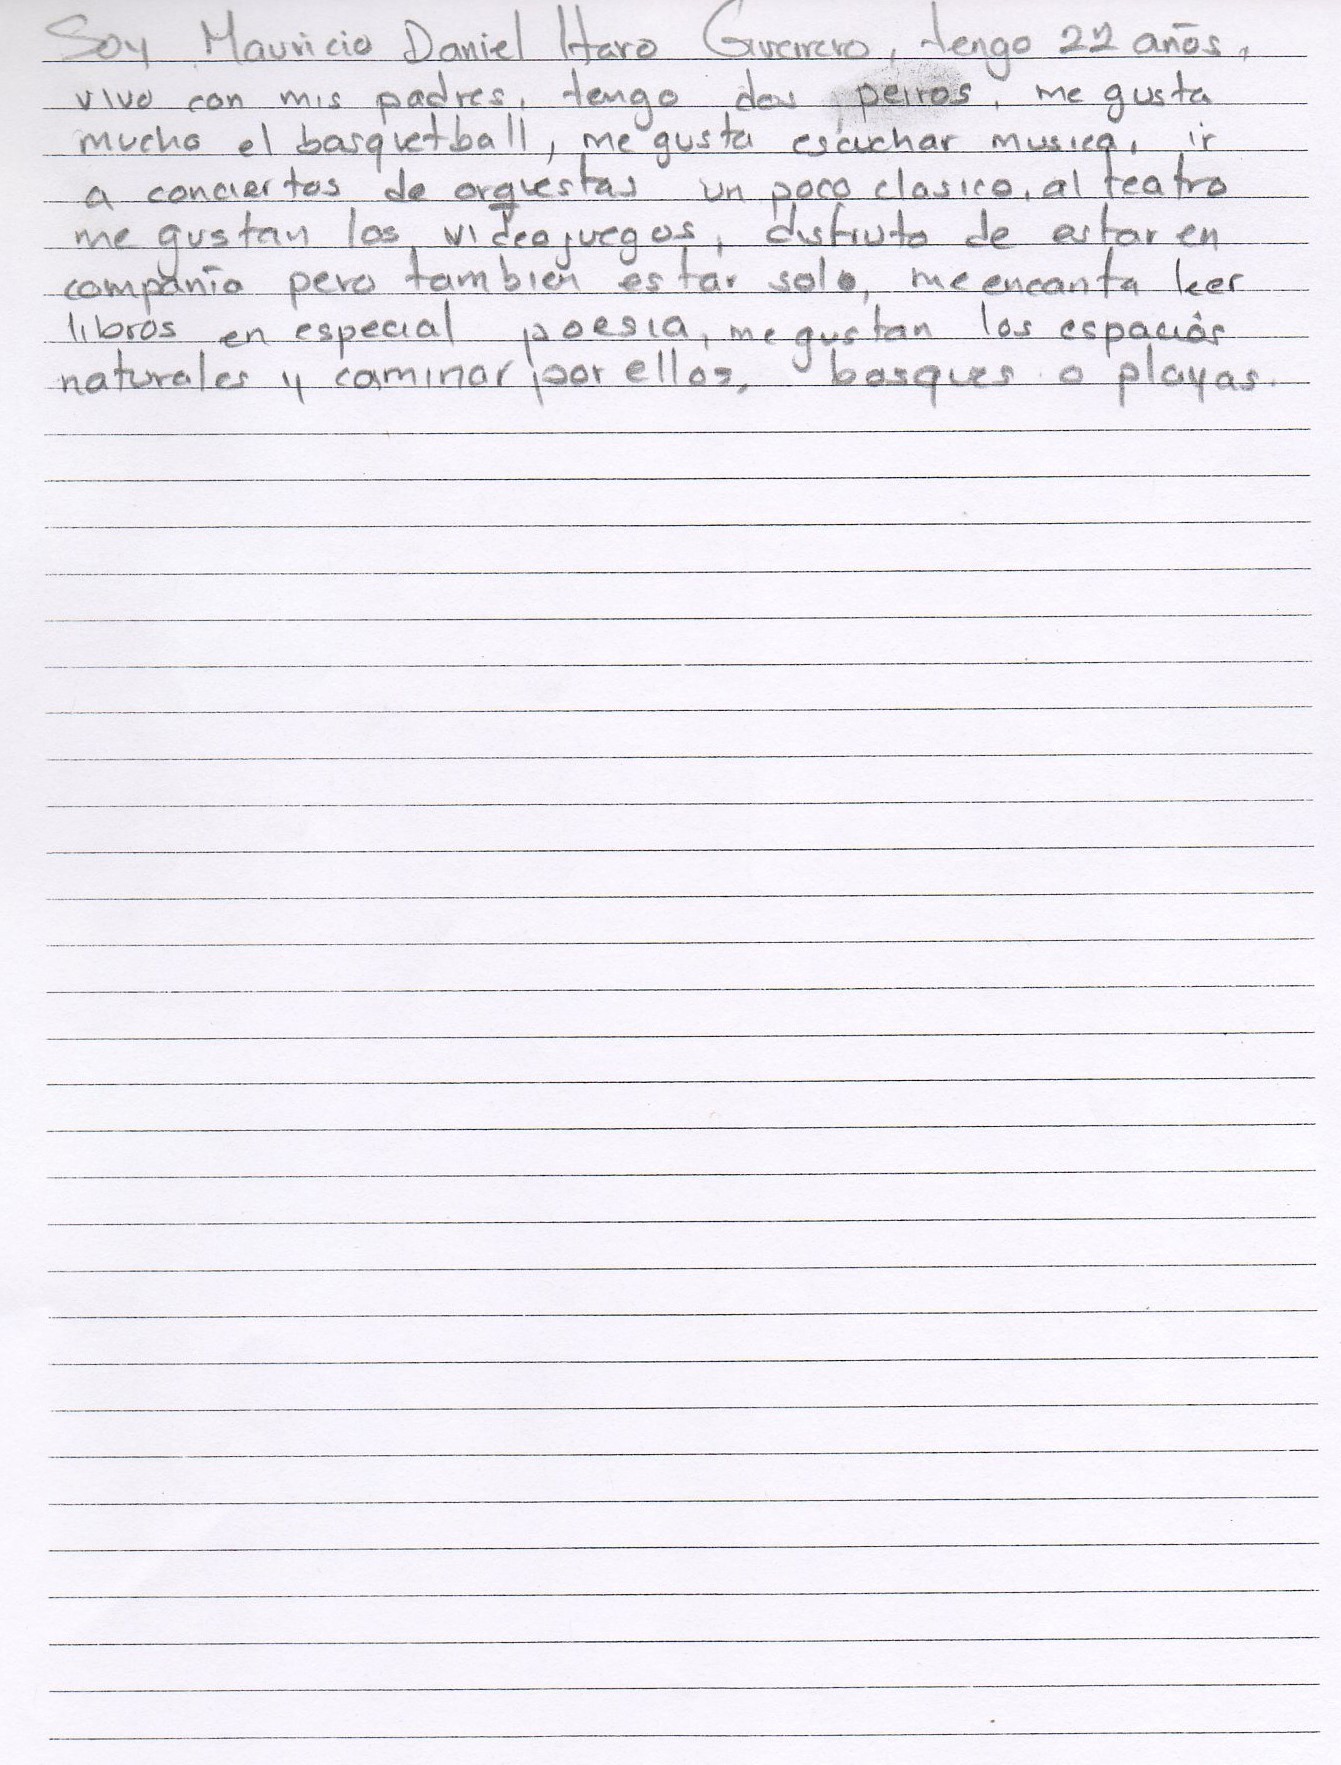 Soy Mauricio Daniel Haro Guerrero, tengo 22 años,
vivo con mis padres, tengo dos perros, me gusta
mucho el basquetball, me gusta escuchar musica, ir
a conciertos de orquestas un poco clasico, al teatro
me gustan los videojuegos, disfruto de estar en
compañia pero tambien estar solo, me encanta leer
libros en especial poesia, me gustan los espacios
naturales y caminar por ellos, bosques o playas.